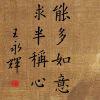 能多如意
求半稱心
王永輝